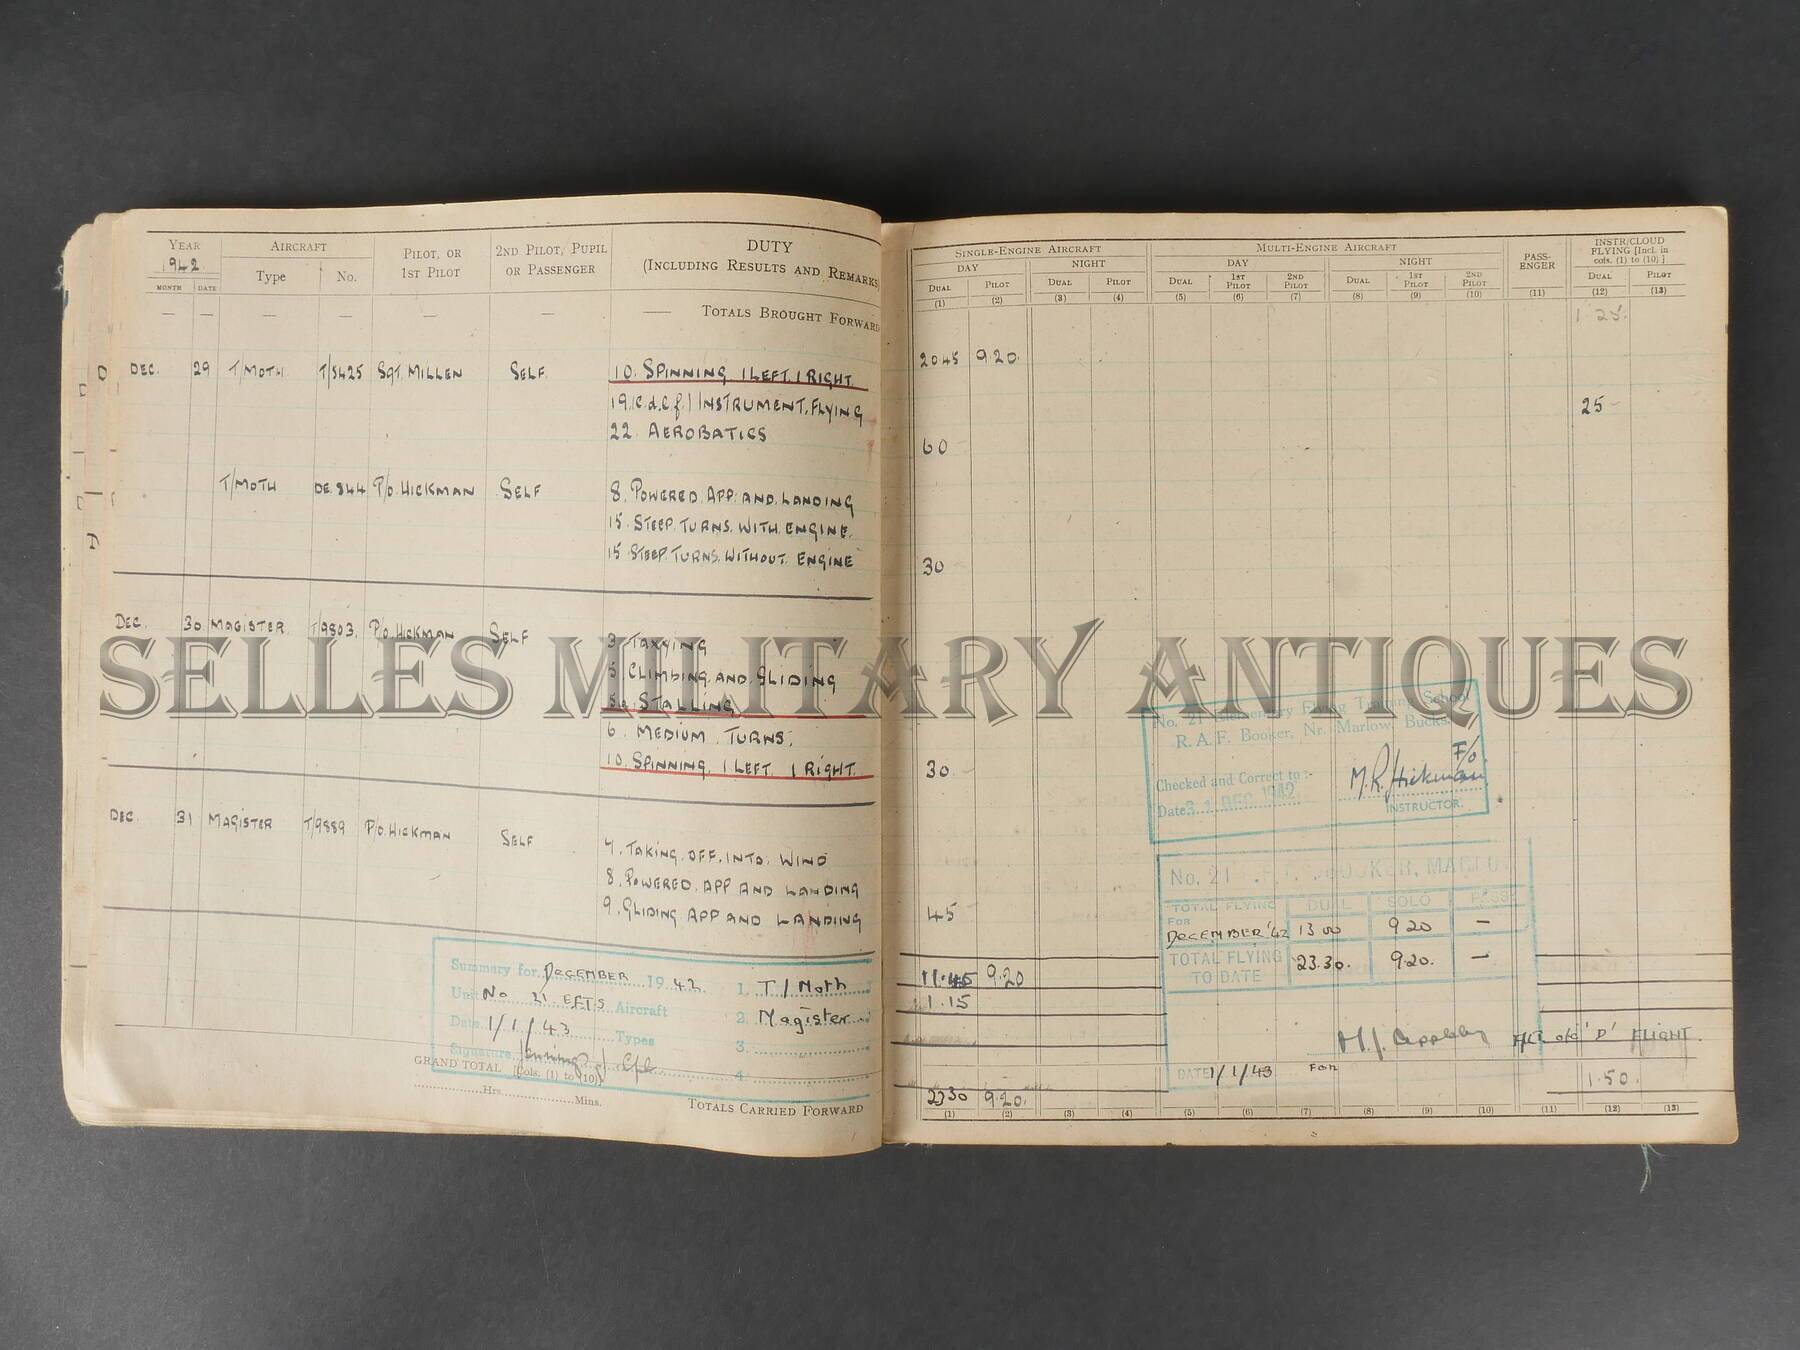 YEAR AIRCRAFT PILOT, OR 1ST PILOT 2ND PILOT, PUPIL OR PASSENGER DUTY (INCLUDING RESULTS AND REMARKS)
1942 Type No.
MONTH DATE
— — — — — — — TOTALS BROUGHT FORWARD
DEC. 29 T/MOTH T/5425 SGT. MILLEN SELF 10. SPINNING 1 LEFT. 1 RIGHT.
19.(c.d.e.f.) INSTRUMENT. FLYING
22. AEROBATICS
T/MOTH DE.844 P/O. HICKMAN SELF 8. POWERED. APP. AND. LANDING
15. STEEP. TURNS. WITH. ENGINE.
15 STEEP. TURNS. WITHOUT. ENGINE
DEC. 30 MAGISTER T/9803. P/O. HICKMAN SELF 3. TAXYING
5. CLIMBING. AND. GLIDING
5a. STALLING
6. MEDIUM. TURNS.
10. SPINNING. 1 LEFT. 1 RIGHT.
DEC. 31 MAGISTER T/9889 P/O. HICKMAN SELF 7. TAKING. OFF. INTO. WIND
8. POWERED. APP AND LANDING
9. GLIDING APP AND LANDING
Summary for DECEMBER 1942. 1. T/Moth
Unit No 21 EFTS Aircraft 2. Magister
Date 1/1/43 Types 3.
Signature Cpl 4.
GRAND TOTAL [Cols. (1) to (10)]
Hrs. Mins.
TOTALS CARRIED FORWARD
SINGLE-ENGINE AIRCRAFT MULTI-ENGINE AIRCRAFT PASS-ENGER INSTR/CLOUD FLYING [Incl. in cols. (1) to (10)]
DAY NIGHT DAY NIGHT
DUAL PILOT DUAL PILOT DUAL 1ST PILOT 2ND PILOT DUAL 1ST PILOT 2ND PILOT DUAL PILOT
(1) (2) (3) (4) (5) (6) (7) (8) (9) (10) (11) (12) (13)
1.25.
2045 9.20.
25
60
30
30
45
No. 21 Elementary Flying Training School
R.A.F. Booker, Nr. Marlow, Bucks.
Checked and Correct to :- M.R. Hickman F/O.
Date 31 DEC 1942 INSTRUCTOR.
No. 21 E.F.T.S. BOOKER, MARLOW
TOTAL FLYING DUAL SOLO PASS
FOR DECEMBER '42 13 00 9 20 —
TOTAL FLYING TO DATE 23.30. 9.20. —
11.45 9.20
1.15
H.J. Appleby F/LT. o/c 'D' FLIGHT.
DATE 1/1/43 FOR
1.50.
2330 9.20.
(1) (2) (3) (4) (5) (6) (7) (8) (9) (10) (11) (12) (13)
SELLES MILITARY ANTIQUES